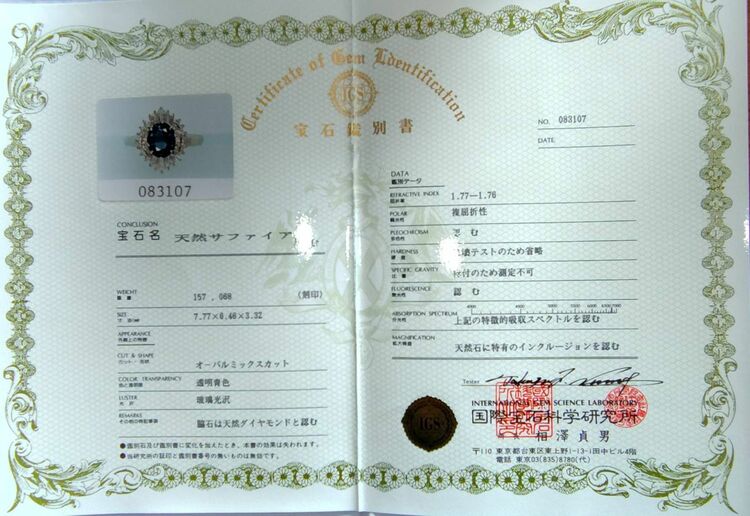 Certificate of Gem Ldentification
IGS
宝石鑑別書
083107
CONCLUSION
宝石名 天然サファイア
WEIGHT
重量 157 , 068 (刻印)
SIZE
寸法(mm) 7.77×6.46×3.32
APPEARANCE
外観上の特徴
CUT & SHAPE
カット/形状 オーバルミックスカット
COLOR TRANSPARENCY
色と透明度 透明青色
LUSTER
光沢 玻璃光沢
REMARKS
その他の特記事項 脇石は天然ダイヤモンドと認む
●鑑別石及び鑑別書に変化を加えたとき、本書の効果は失われます。
●当研究所の証印と鑑別書番号の無いものは無効です。
NO. 083107
DATE
DATA
鑑別データ
REFRACTIVE INDEX
屈折率 1.77—1.76
POLAR
偏光性 複屈折性
PLEOCHROISM
多色性 認む
HARDNESS
硬度 破壊テストのため省略
SPECIFIC GRAVITY
比重 枠付のため測定不可
FLUORESCENCE
蛍光性 認む
ABSORPTION SPECTRUM
分光性 上記の特徴的吸収スペクトルを認む
MAGNIFICATION
拡大検査 天然石に特有のインクルージョンを認む
Tester
INTERNATIONAL GEM SCIENCE LABORATORY
国際宝石科学研究所
IGS
相澤貞男
〒110 東京都台東区東上野1-13-1田中ビル4階
電話 東京03(835)8780(代)